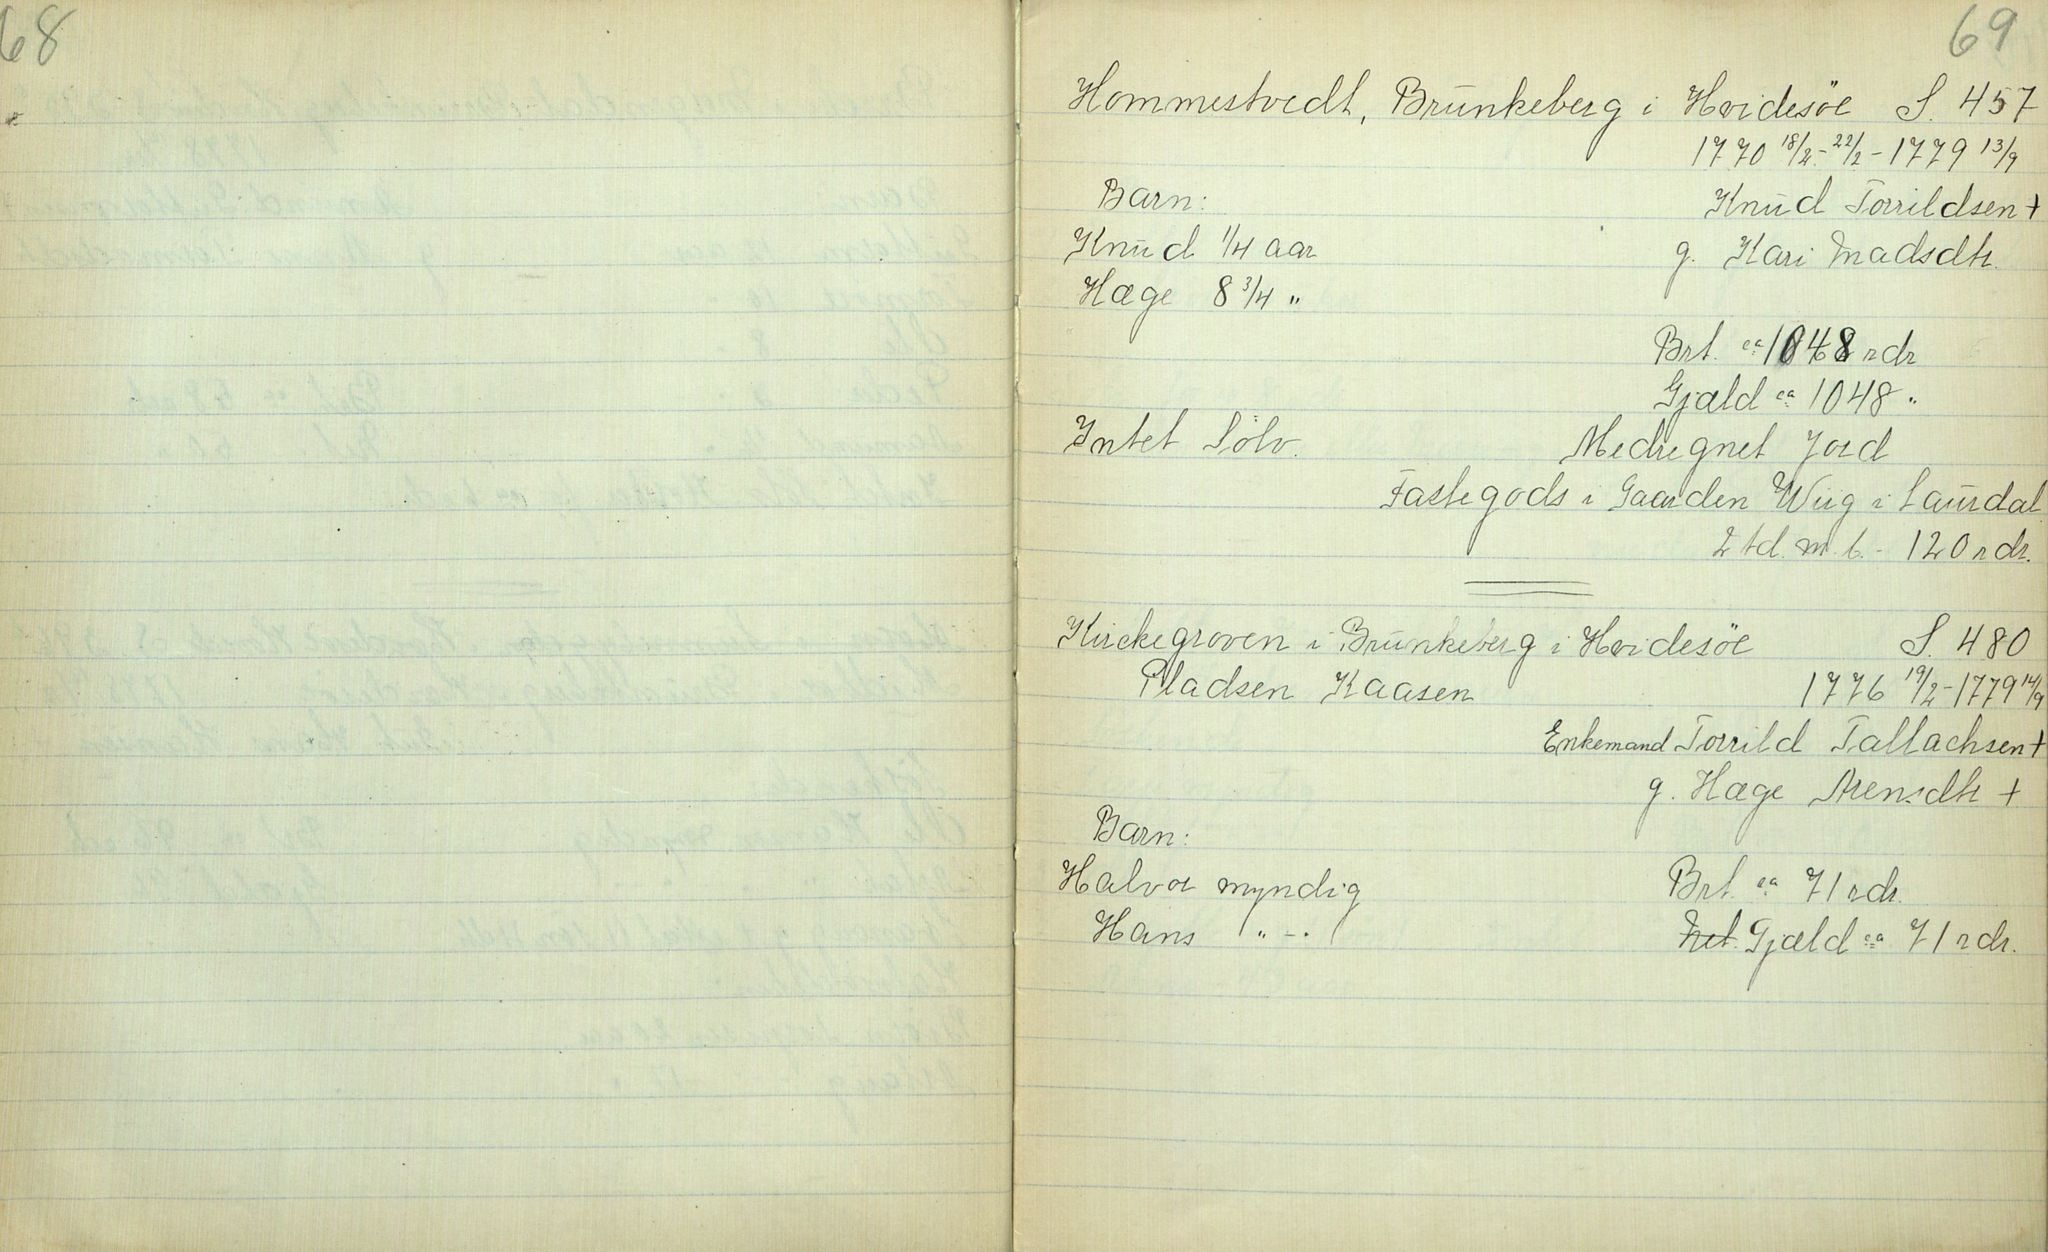 68
69
Hommestvedt, Brunkeberg i Hvidesöe S. 457
1770 18/2 - 22/2 - 1779 13/9
Barn: Knud Torrildsen +
Knud 1/4 aar g. Kari Madsdtr.
Hæge 8 3/4 "
Brt. ca 1048 rdr
Gjæld ca 1048 "
Intet Sölv. Medregnet Jord
Fastegods i Gaarden Wiig i Laurdal
2 td. m. l. - 120 rdr.
Kirckegroven i Brunkeberg i Hvidesöe S. 480
Pladsen Kaasen 1776 19/2 - 1779 14/9
Enkemand Torrild Tallachsen +
g. Hæge Arensdtr +
Barn:
Halvor myndig Brt. ca 71 rdr.
Hans " - " Net. Gjæld ca 71 rdr.